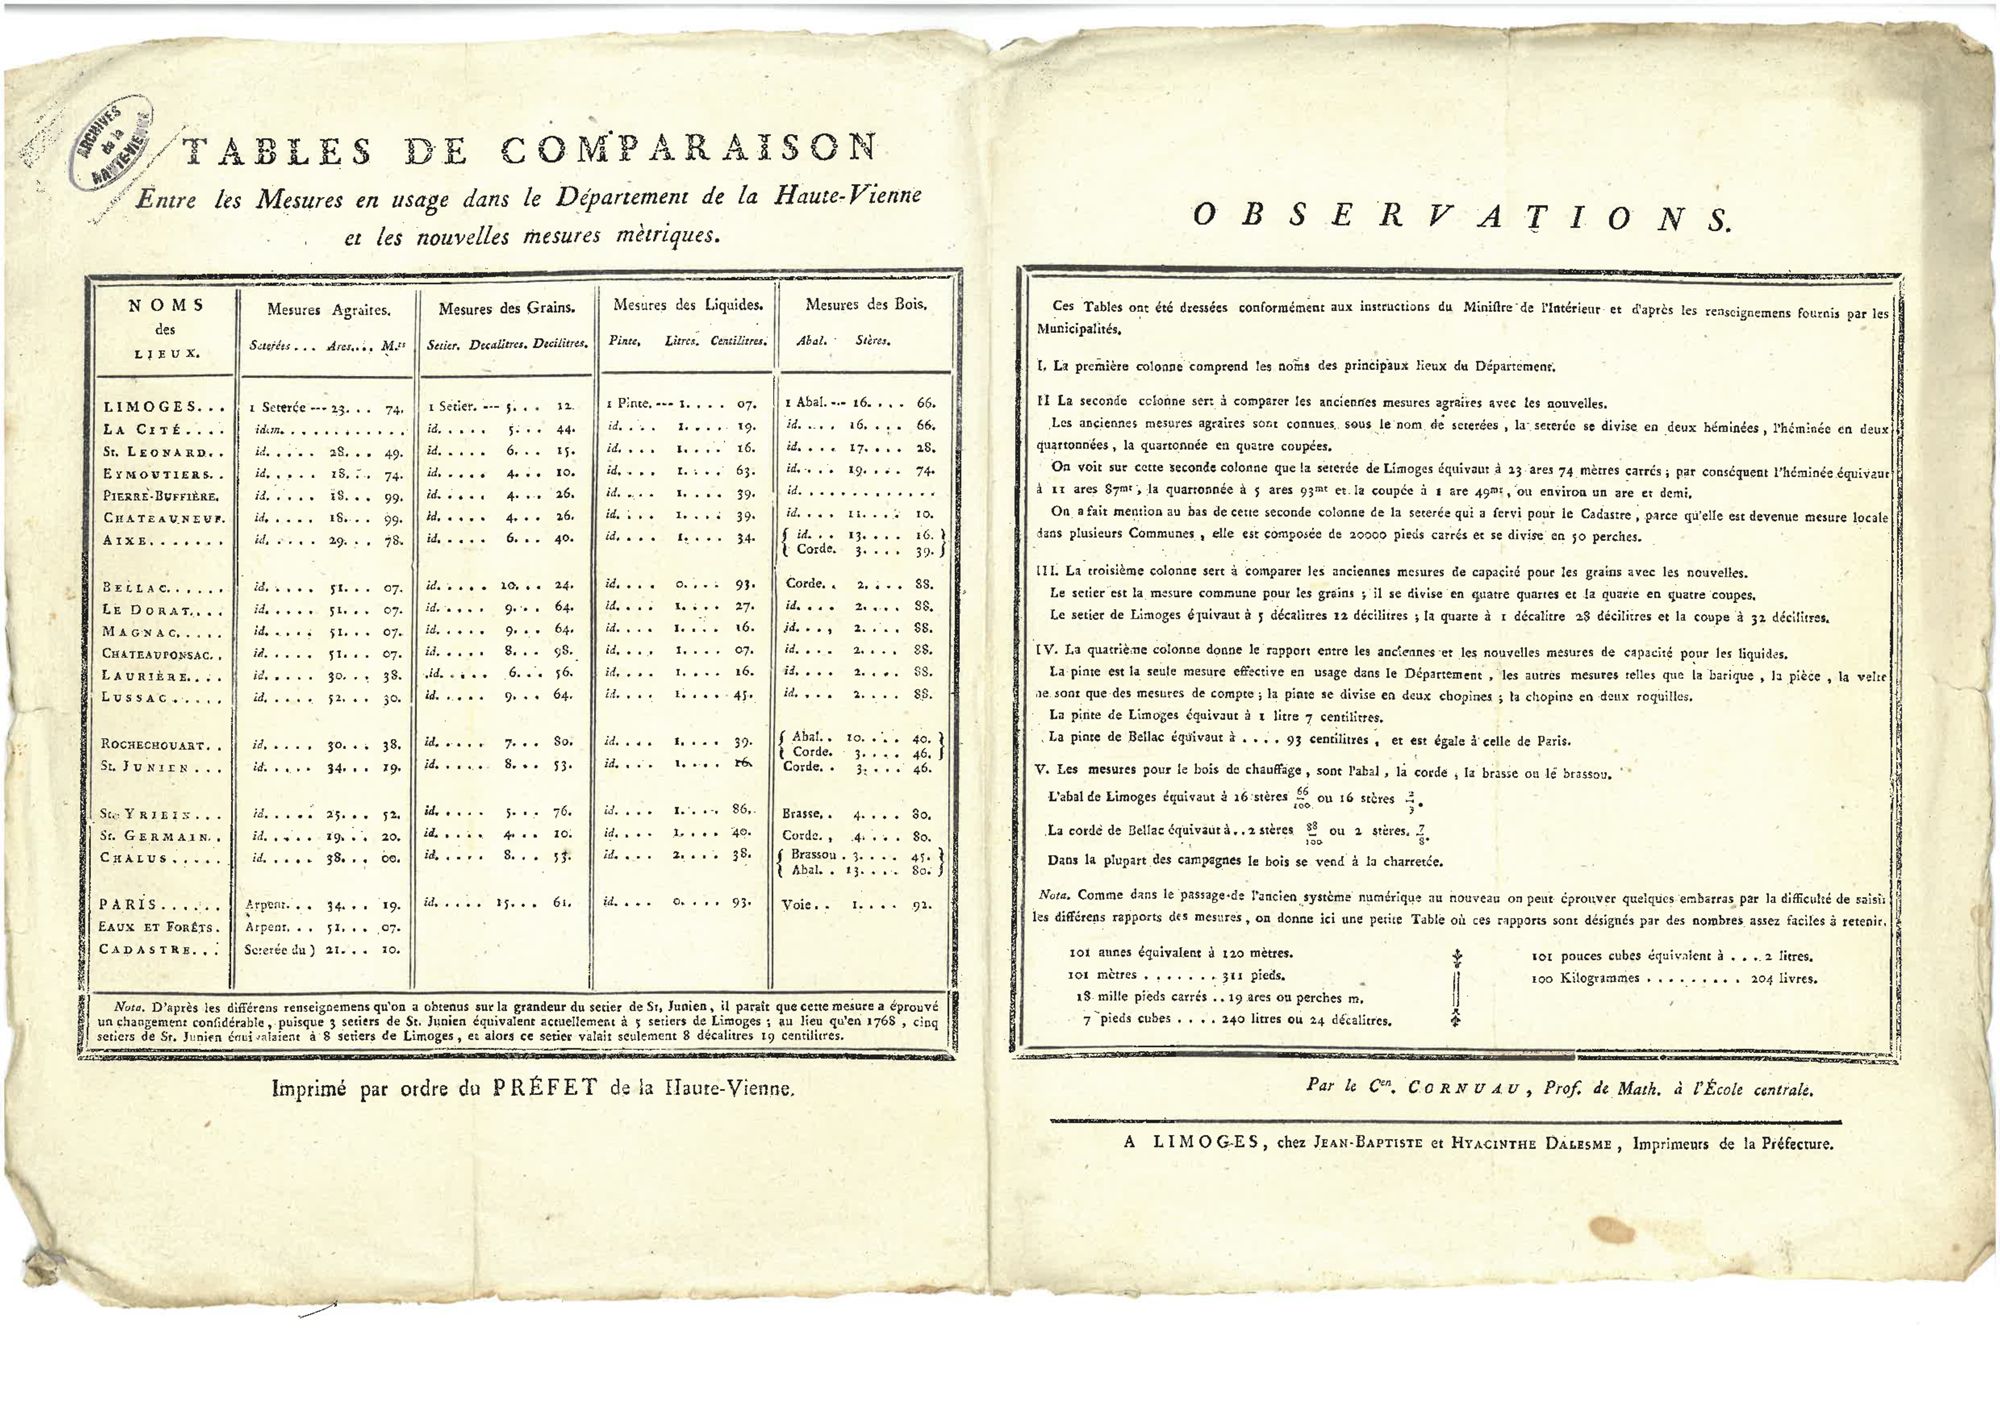 ARCHIVES
de la
HAUTE-VIENNE
TABLES DE COMPARAISON
Entre les Mesures en usage dans le Département de la Haute-Vienne
et les nouvelles mesures mètriques.
NOMS des LIEUX. | Mesures Agraires. | Mesures des Grains. | Mesures des Liquides. | Mesures des Bois.
Seterées... Ares.... M.es | Setier. Decalitres. Decilitres. | Pinte. Litres. Centilitres. | Abal. Stères.
LIMOGES... 1 Seterée --- 23... 74. 1 Setier. --- 5... 12. 1 Pinte. --- 1.... 07. 1 Abal. --- 16.... 66.
LA CITÉ.... idem............ id..... 5... 44. id.... 1.... 19. id.... 16.... 66.
St. LEONARD.. id..... 28... 49. id..... 6... 15. id.... 1.... 16. id.... 17.... 28.
EYMOUTIERS.. id..... 18... 74. id..... 4... 10. id.... 1.... 63. id.... 19.... 74.
PIERRE-BUFFIÈRE. id..... 18... 99. id..... 4... 26. id.... 1.... 39. id.............
CHATEAUNEUF. id..... 18... 99. id..... 4... 26. id.... 1.... 39. id.... 11.... 10.
AIXE....... id..... 29... 78. id..... 6... 40. id.... 1.... 34. { id... 13.... 16. }
{ Corde. 3.... 39. }
BELLAC...... id..... 51... 07. id..... 10... 24. id.... 0.... 93. Corde.. 2.... 88.
LE DORAT.... id..... 51... 07. id..... 9... 64. id.... 1.... 27. id.... 2.... 88.
MAGNAC..... id..... 51... 07. id..... 9... 64. id.... 1.... 16. id..., 2.... 88.
CHATEAUPONSAC.. id..... 51... 07. id..... 8... 98. id.... 1.... 07. id.... 2.... 88.
LAURIÈRE.... id..... 30... 38. id..... 6... 56. id.... 1.... 16. id.... 2.... 88.
LUSSAC..... id..... 52... 30. id..... 9... 64. id.... 1.... 45. id.... 2.... 88.
ROCHECHOUART.. id..... 30... 38. id..... 7... 80. id.... 1.... 39. { Abal.. 10.... 40. }
{ Corde. 3.... 46. }
St. JUNIEN... id..... 34... 19. id..... 8... 53. id.... 1.... 16. Corde.. 3.... 46.
St. YRIEIX... id..... 25... 52. id..... 5... 76. id.... 1.... 86. Brasse.. 4.... 80.
St. GERMAIN.. id..... 19... 20. id..... 4... 10. id.... 1.... 40. Corde., 4.... 80.
CHALUS..... id..... 38... 00. id..... 8... 53. id.... 2.... 38. { Brassou. 3.... 45. }
{ Abal.. 13.... 80. }
PARIS...... Arpent... 34... 19. id..... 15... 61. id.... 0.... 93. Voie.. 1.... 92.
EAUX ET FORÊTS. Arpent... 51... 07.
CADASTRE... Seterée du ) 21... 10.
Nota. D'après les différens renseignemens qu'on a obtenus sur la grandeur du setier de St. Junien, il paraît que cette mesure a éprouvé
un changement considérable, puisque 3 setiers de St. Junien équivalent actuellement à 5 setiers de Limoges ; au lieu qu'en 1768, cinq
setiers de St. Junien équivalaient à 8 setiers de Limoges, et alors ce setier valait seulement 8 décalitres 19 centilitres.
Imprimé par ordre du PRÉFET de la Haute-Vienne.
OBSERVATIONS.
Ces Tables ont été dressées conformément aux instructions du Ministre de l'Intérieur et d'après les renseignemens fournis par les
Municipalités.
I. La première colonne comprend les noms des principaux lieux du Département.
II La seconde colonne sert à comparer les anciennes mesures agraires avec les nouvelles.
Les anciennes mesures agraires sont connues sous le nom de seterées, la seterée se divise en deux héminées, l'héminée en deux
quartonnées, la quartonnée en quatre coupées.
On voit sur cette seconde colonne que la seterée de Limoges équivaut à 23 ares 74 mètres carrés ; par conséquent l'héminée équivaut
à 11 ares 87mt, la quartonnée à 5 ares 93mt et la coupée à 1 are 49mt, ou environ un are et demi.
On a fait mention au bas de cette seconde colonne de la seterée qui a servi pour le Cadastre, parce qu'elle est devenue mesure locale
dans plusieurs Communes, elle est composée de 20000 pieds carrés et se divise en 50 perches.
III. La troisième colonne sert à comparer les anciennes mesures de capacité pour les grains avec les nouvelles.
Le setier est la mesure commune pour les grains ; il se divise en quatre quartes et la quarte en quatre coupes.
Le setier de Limoges équivaut à 5 décalitres 12 décilitres ; la quarte à 1 décalitre 28 décilitres et la coupe à 32 décilitres.
IV. La quatrième colonne donne le rapport entre les anciennes et les nouvelles mesures de capacité pour les liquides.
La pinte est la seule mesure effective en usage dans le Département, les autres mesures telles que la barique, la pièce, la velte
ne sont que des mesures de compte ; la pinte se divise en deux chopines ; la chopine en deux roquilles.
La pinte de Limoges équivaut à 1 litre 7 centilitres.
La pinte de Bellac équivaut à .... 93 centilitres, et est égale à celle de Paris.
V. Les mesures pour le bois de chauffage, sont l'abal, la corde, la brasse ou le brassou.
L'abal de Limoges équivaut à 16 stères 66/100 ou 16 stères 2/3.
La corde de Bellac équivaut à.. 2 stères 88/100 ou 2 stères. 7/8.
Dans la plupart des campagnes le bois se vend à la charretée.
Nota. Comme dans le passage de l'ancien système numérique au nouveau on peut éprouver quelques embarras par la difficulté de saisir
les différens rapports des mesures, on donne ici une petite Table où ces rapports sont désignés par des nombres assez faciles à retenir.
101 aunes équivalent à 120 mètres.
101 mètres ....... 311 pieds.
18 mille pieds carrés .. 19 ares ou perches m.
7 pieds cubes .... 240 litres ou 24 décalitres.
101 pouces cubes équivalent à .... 2 litres.
100 Kilogrammes ......... 204 livres.
Par le Cen. CORNUAU, Prof. de Math. à l'École centrale.
A LIMOGES, chez JEAN-BAPTISTE et HYACINTHE DALESME, Imprimeurs de la Préfecture.